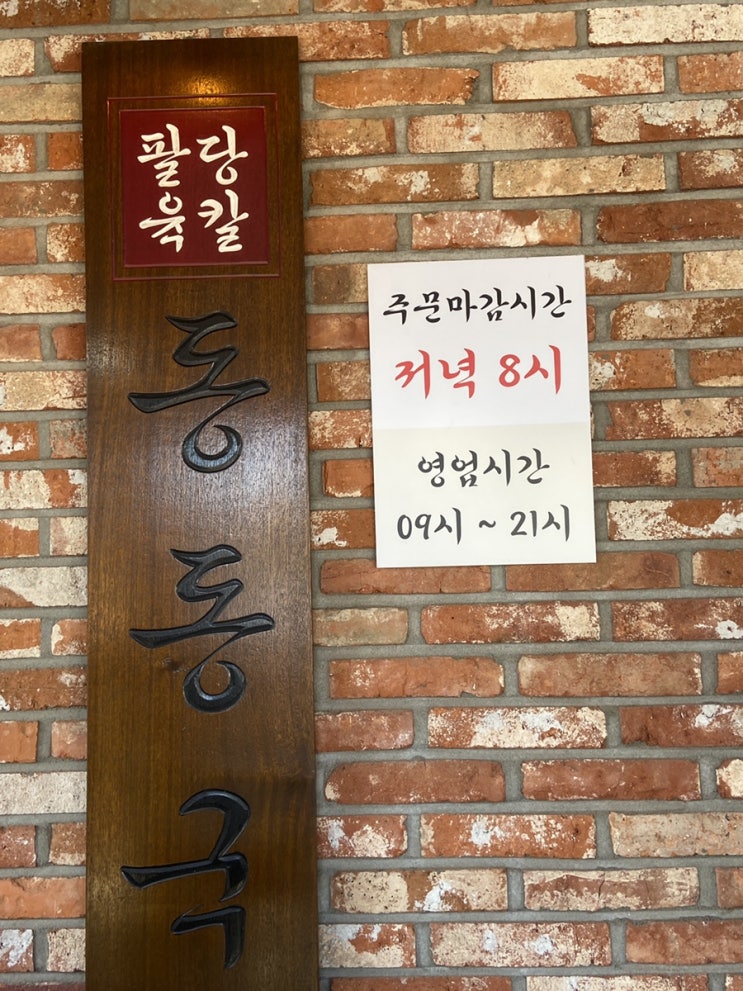 팔당
육칼
동동국
주문마감시간
저녁 8시
영업시간
09시 ~ 21시